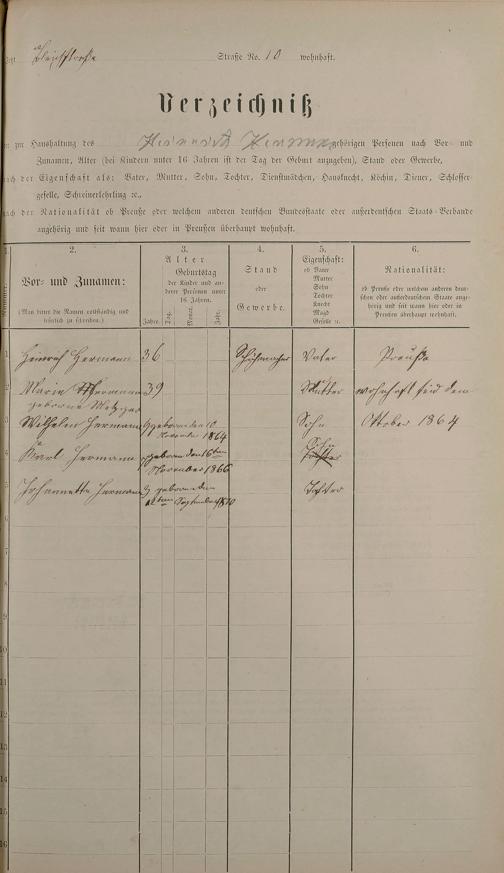 Jetzt Bleichstraße Straße No. 10 wohnhaft.
Verzeichniß
zur Haushaltung des Heinrich Hermann gehörigen Personen nach Vor- und
Zunamen, Alter (bei Kindern unter 16 Jahren ist der Tag der Geburt anzugeben), Stand oder Gewerbe,
nach der Eigenschaft als: Vater, Mutter, Sohn, Tochter, Dienstmädchen, Hausknecht, Köchin, Diener, Schlosser-
geselle, Schreinerlehrling ꝛc.,
nach der Nationalität ob Preuße oder welchem anderen deutschen Bundesstaate oder außerdeutschen Staats-Verbande
angehörig und seit wann hier oder in Preußen überhaupt wohnhaft.
1. 2. 3. 4. 5. 6.
Nummer.
Vor- und Zunamen:
(Man bittet die Namen vollständig und
leserlich zu schreiben.)
Alter
Geburtstag
der Kinder und an-
derer Personen unter
16 Jahren.
Jahre. Tag. Monat. Jahr.
Stand
oder
Gewerbe.
Eigenschaft:
ob Vater
Mutter
Sohn
Tochter
Knecht
Magd
Geselle ꝛc.
Nationalität:
ob Preuße oder welchem anderen deut-
schen oder außerdeutschen Staate ange-
hörig und seit wann hier oder in
Preußen überhaupt wohnhaft.
1 Heinrich Hermann 36 Schuhmacher Vater Preuße
2 Marie Hermann 39 Mutter wohnhaft seid dem
geborene Metzger
3 Wilhelm Hermann 9 geboren den 10 Sohn Oktober 1864
November 1864
4 Karl Hermann geboren den 16ten Sohn
November 1866 Tochter
5 Johannette Hermann 3 geboren den Tochter
ten September 1870
6
7
8
9
10
11
12
13
14
15
16